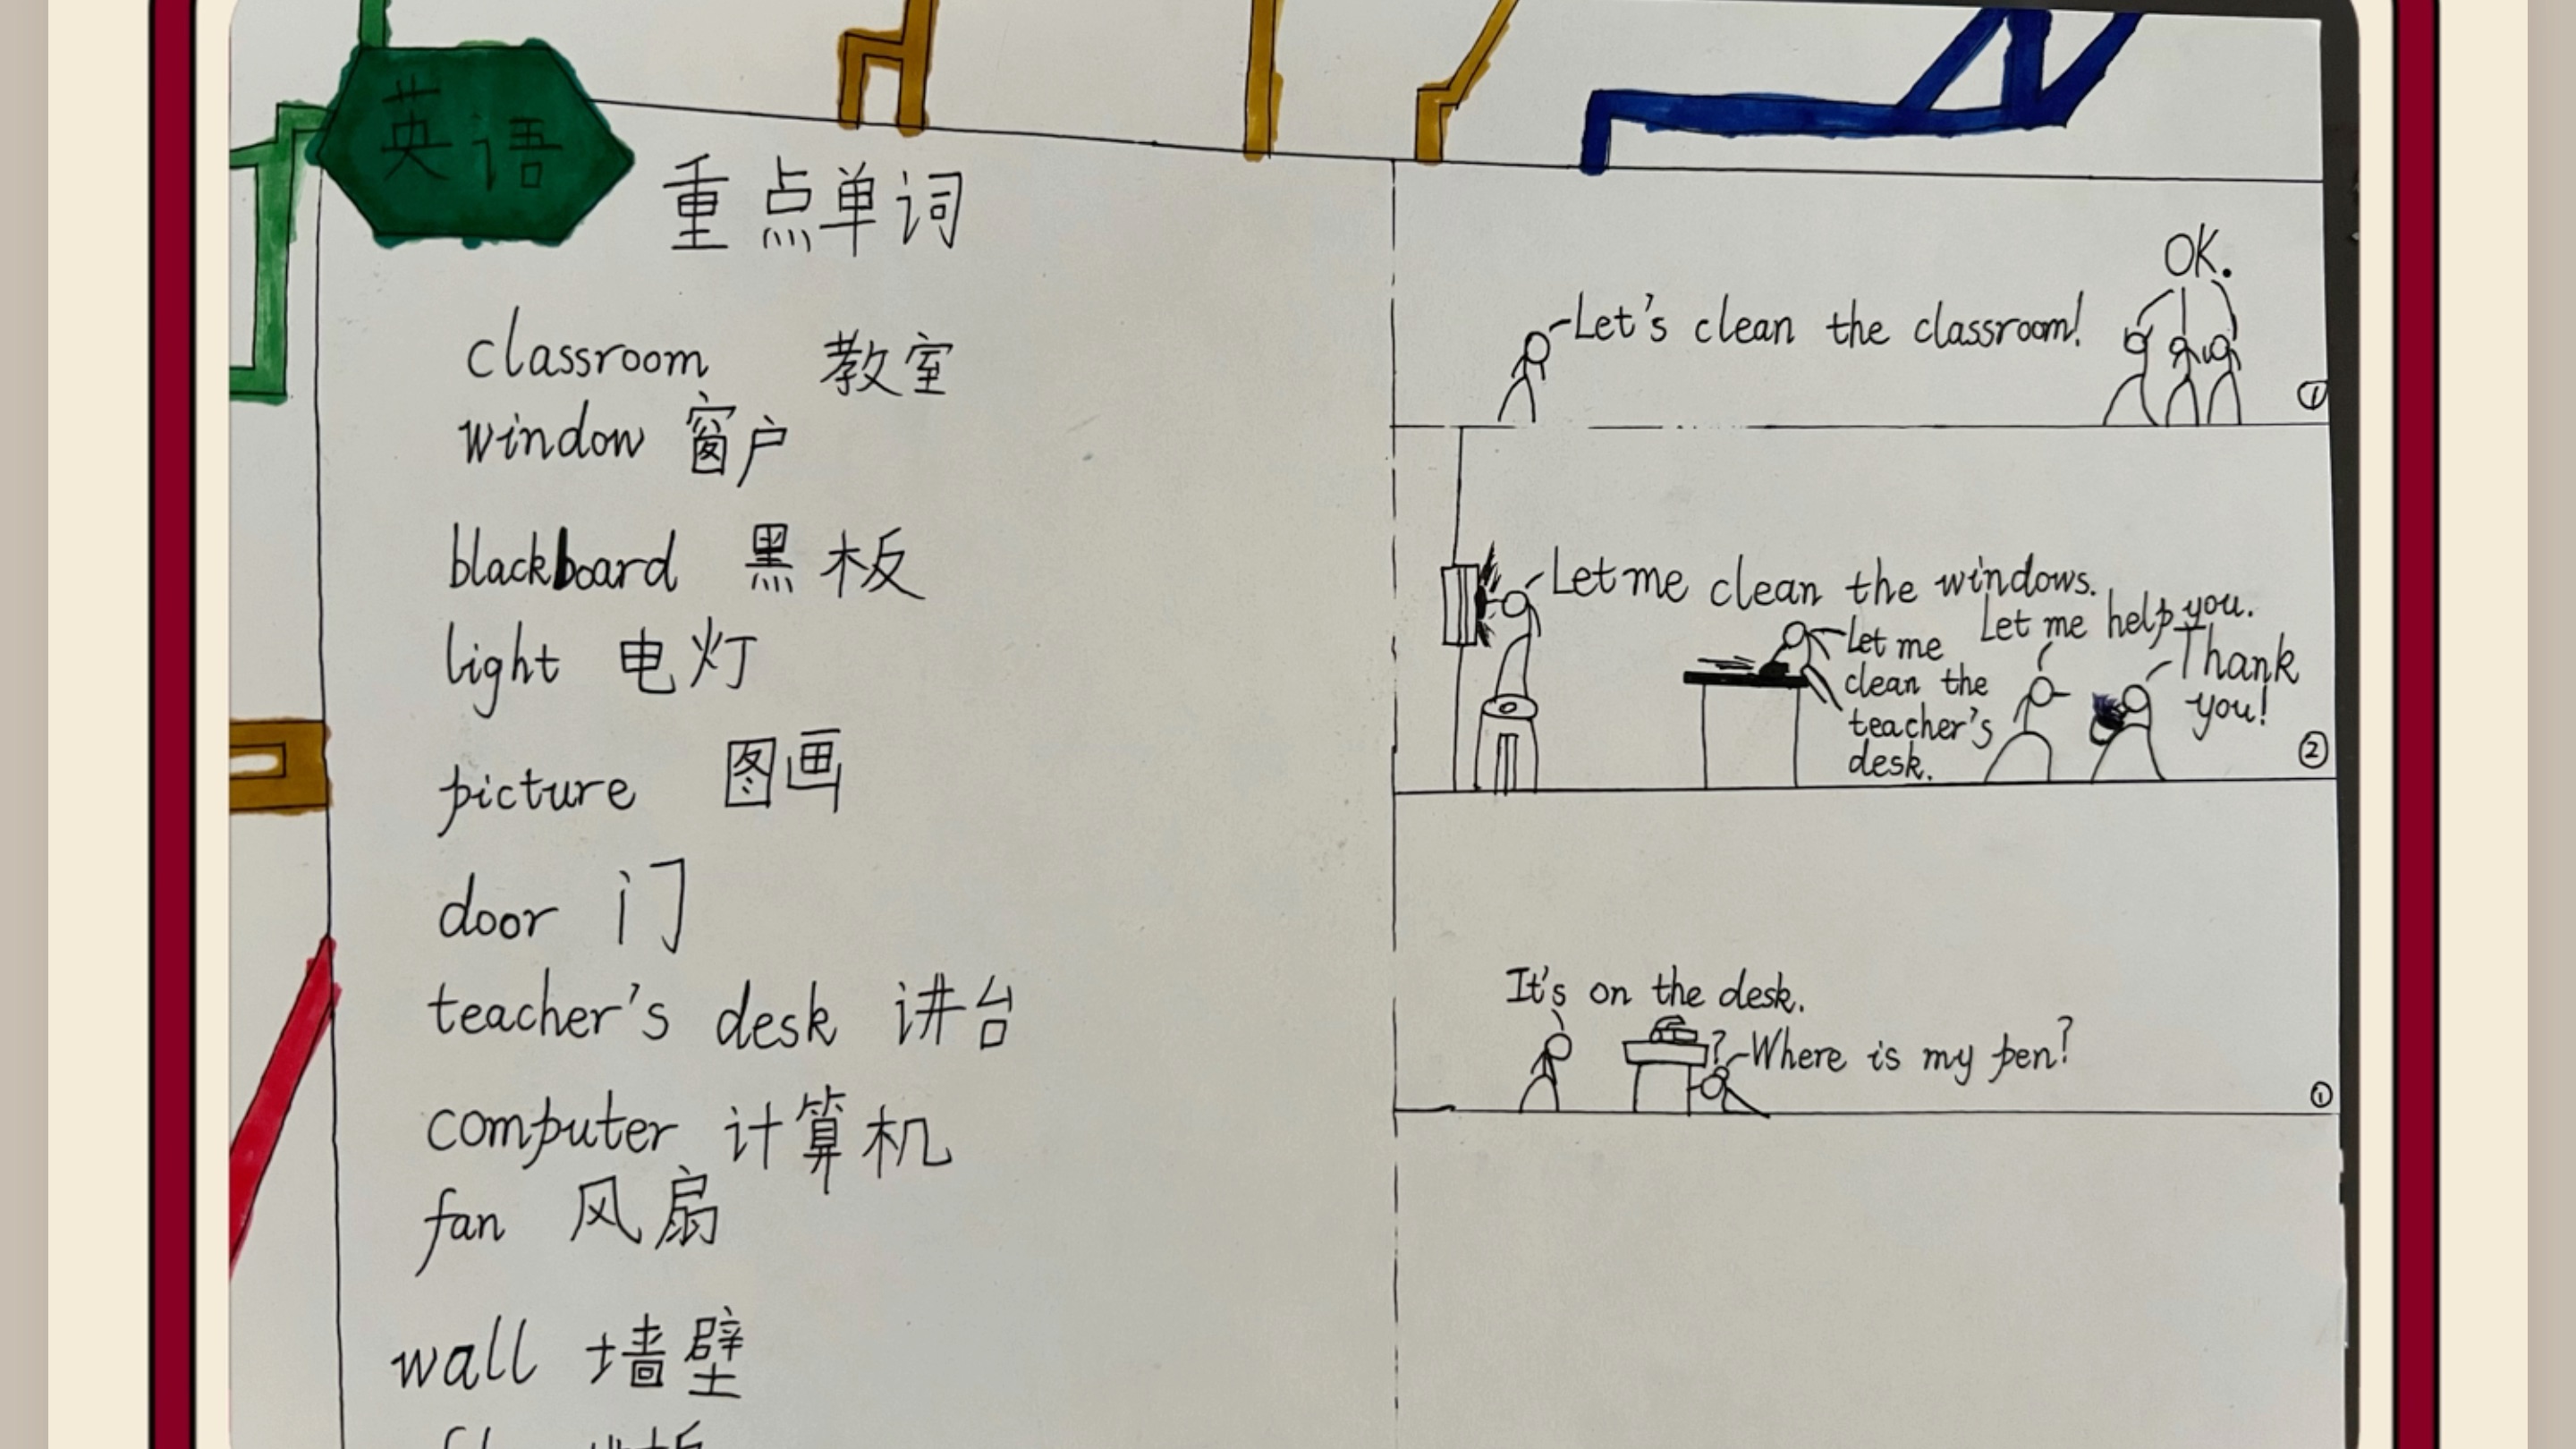 英语
重点单词
classroom 教室
window 窗户
blackboard 黑板
light 电灯
picture 图画
door 门
teacher's desk 讲台
computer 计算机
fan 风扇
wall 墙壁
OK.
Let's clean the classroom!
①
Let me clean the windows.
Let me help you.
Let me
clean the
teacher's
desk.
Thank
you!
②
It's on the desk.
?
Where is my pen?
①